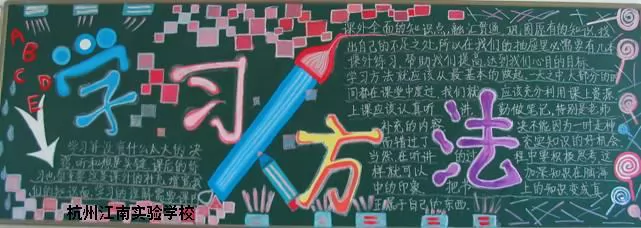 A
B
C
D
E
学习方法
课外全面的知识点,融汇贯通,巩固原有的知识,找
出自己的不足之处,所以在我们的抽屉里必需要有几本
课外练习,帮助我们提高,达到我们心目的目标
学习方法就应该从最基本的做起,一天之中大部分的时
间都在课堂中度过,我们就 应该充分利用课上资源,
上课应该认真听讲,勤做笔记,特别是老师
补充的内容 决不能因为一时走神
而错过了 充实知识的好机会
当然,在听讲的过程中要积极思考,这
样就可以 加深知识在脑海
中的印象 把书 上的知识变成真
正属于自己的东西.
学习并没有什么太大的决
窍,听和想是关键,课后的复
杭州江南实验学校